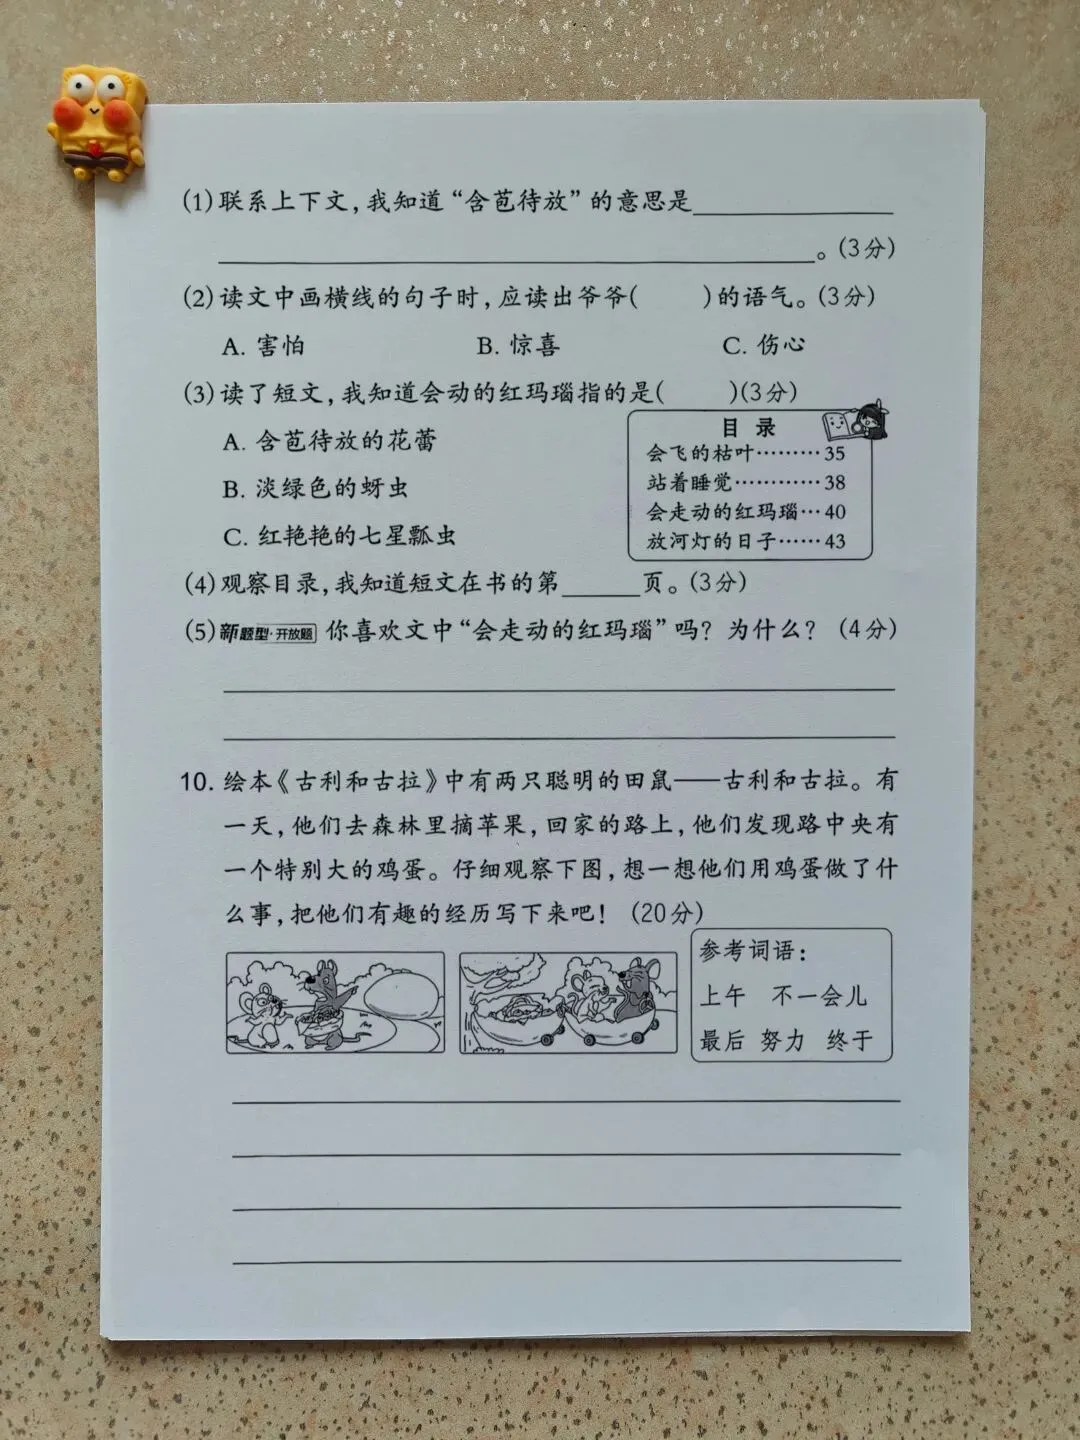 (1)联系上下文,我知道“含苞待放”的意思是
。(3分)
(2)读文中画横线的句子时,应读出爷爷(    )的语气。(3分)
A. 害怕    B. 惊喜    C. 伤心
(3)读了短文,我知道会动的红玛瑙指的是(    )(3分)
A. 含苞待放的花蕾
B. 淡绿色的蚜虫
C. 红艳艳的七星瓢虫
目 录
会飞的枯叶………35
站着睡觉…………38
会走动的红玛瑙…40
放河灯的日子……43
(4)观察目录,我知道短文在书的第______页。(3分)
(5)新题型·开放题 你喜欢文中“会走动的红玛瑙”吗?为什么?(4分)
10. 绘本《古利和古拉》中有两只聪明的田鼠——古利和古拉。有
一天,他们去森林里摘苹果,回家的路上,他们发现路中央有
一个特别大的鸡蛋。仔细观察下图,想一想他们用鸡蛋做了什
么事,把他们有趣的经历写下来吧!(20分)
参考词语:
上午 不一会儿
最后 努力 终于